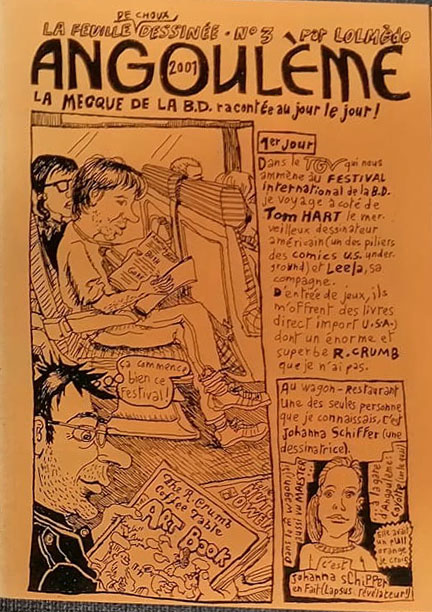 DE CHOUX
LA FEUILLE DESSINÉE • N° 3 Par LOLMÈDE
ANGOULÈME
2001
LA MECQUE DE LA B.D. racontée au jour le jour!
1er JOUR
Dans le TGV qui nous
ammène au FESTIVAL
international de la B.D.
je voyage a coté de
Tom HART le mer-
veilleux dessinateur
américain (un des piliers
des comics U.S. under-
ground) et Leela, sa
compagne.
D'entrée de jeux, ils
m'offrent des livres
direct import U.S.A.)
dont un énorme et
superbe R. CRUMB
que je n'ai pas.
ça commence
bien ce
Festival!
The R. Crumb
Coffee Table
ART Book
Au wagon-Restaurant
une des seules personne
que je connaissais, c'est
Johanna Schiffer (une
dessinatrice).
Dans le wagon, j'ai
aussi vu MAESTER
à la gare
d'Angoulême
Elle avait
un pull
orange
je crois
c'est
Johanna SCHIPPER
en Fait (Lapsus révélateur!)